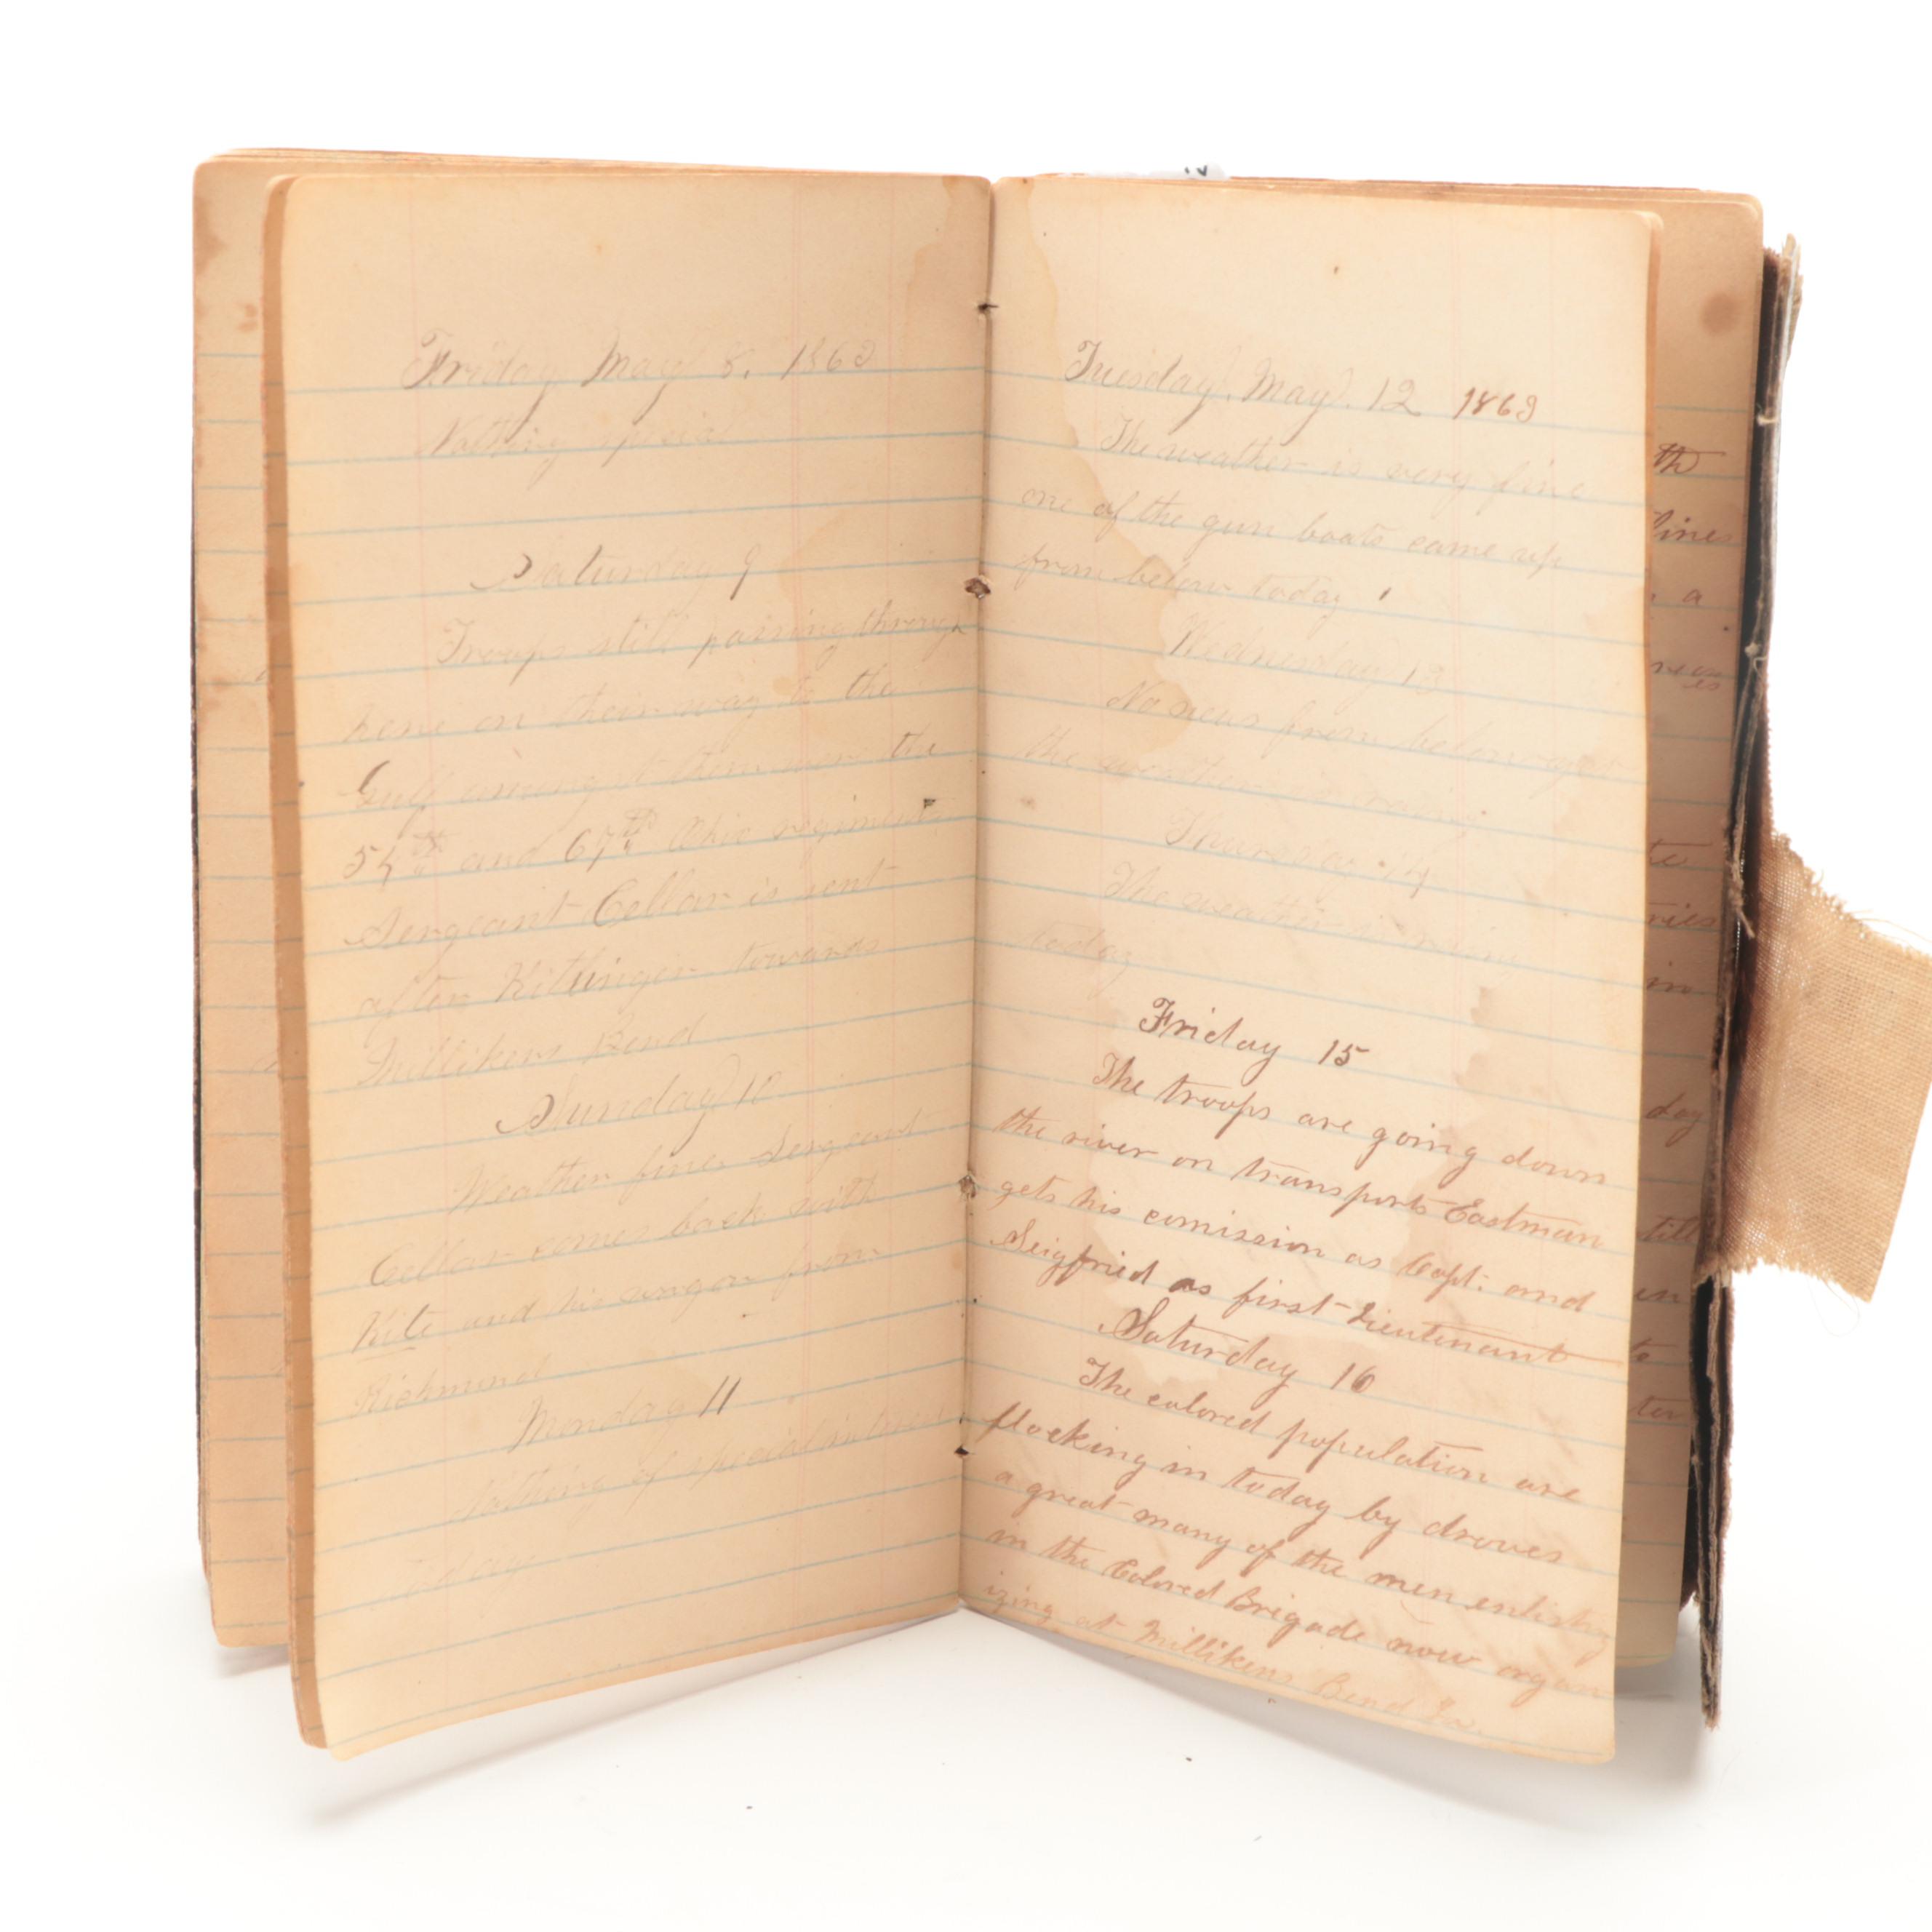 Friday May 8. 1863
Nothing special
Saturday 9
Troops still passing through
here on their way to the
Gulf amongst them were the
54th and 67th Ohio regiments
Sergeant Cellar is sent
after Kitlinger towards
Millikens Bend
Sunday 10
Weather fine. Sergeant
Cellar comes back with
Kite and his wagon from
Richmond
Monday 11
Nothing of special interest
today
Tuesday, May. 12 1863
The weather is very fine
one of the gun boats came up
from below today
Wednesday 13
No news from below yet
the weather is rainy
Thursday 14
The weather is rainy
today
Friday 15
The troops are going down
the river on transports Eastman
gets his comission as Capt. and
Seigfried as first Lieutenant
Saturday 16
The colored population are
flocking in today by droves
a great many of the men enlisting
in the Colored Brigade now organ
izing at Millikens Bend La.
th
lines
a
te
ries
in
day
till
in
to
ter